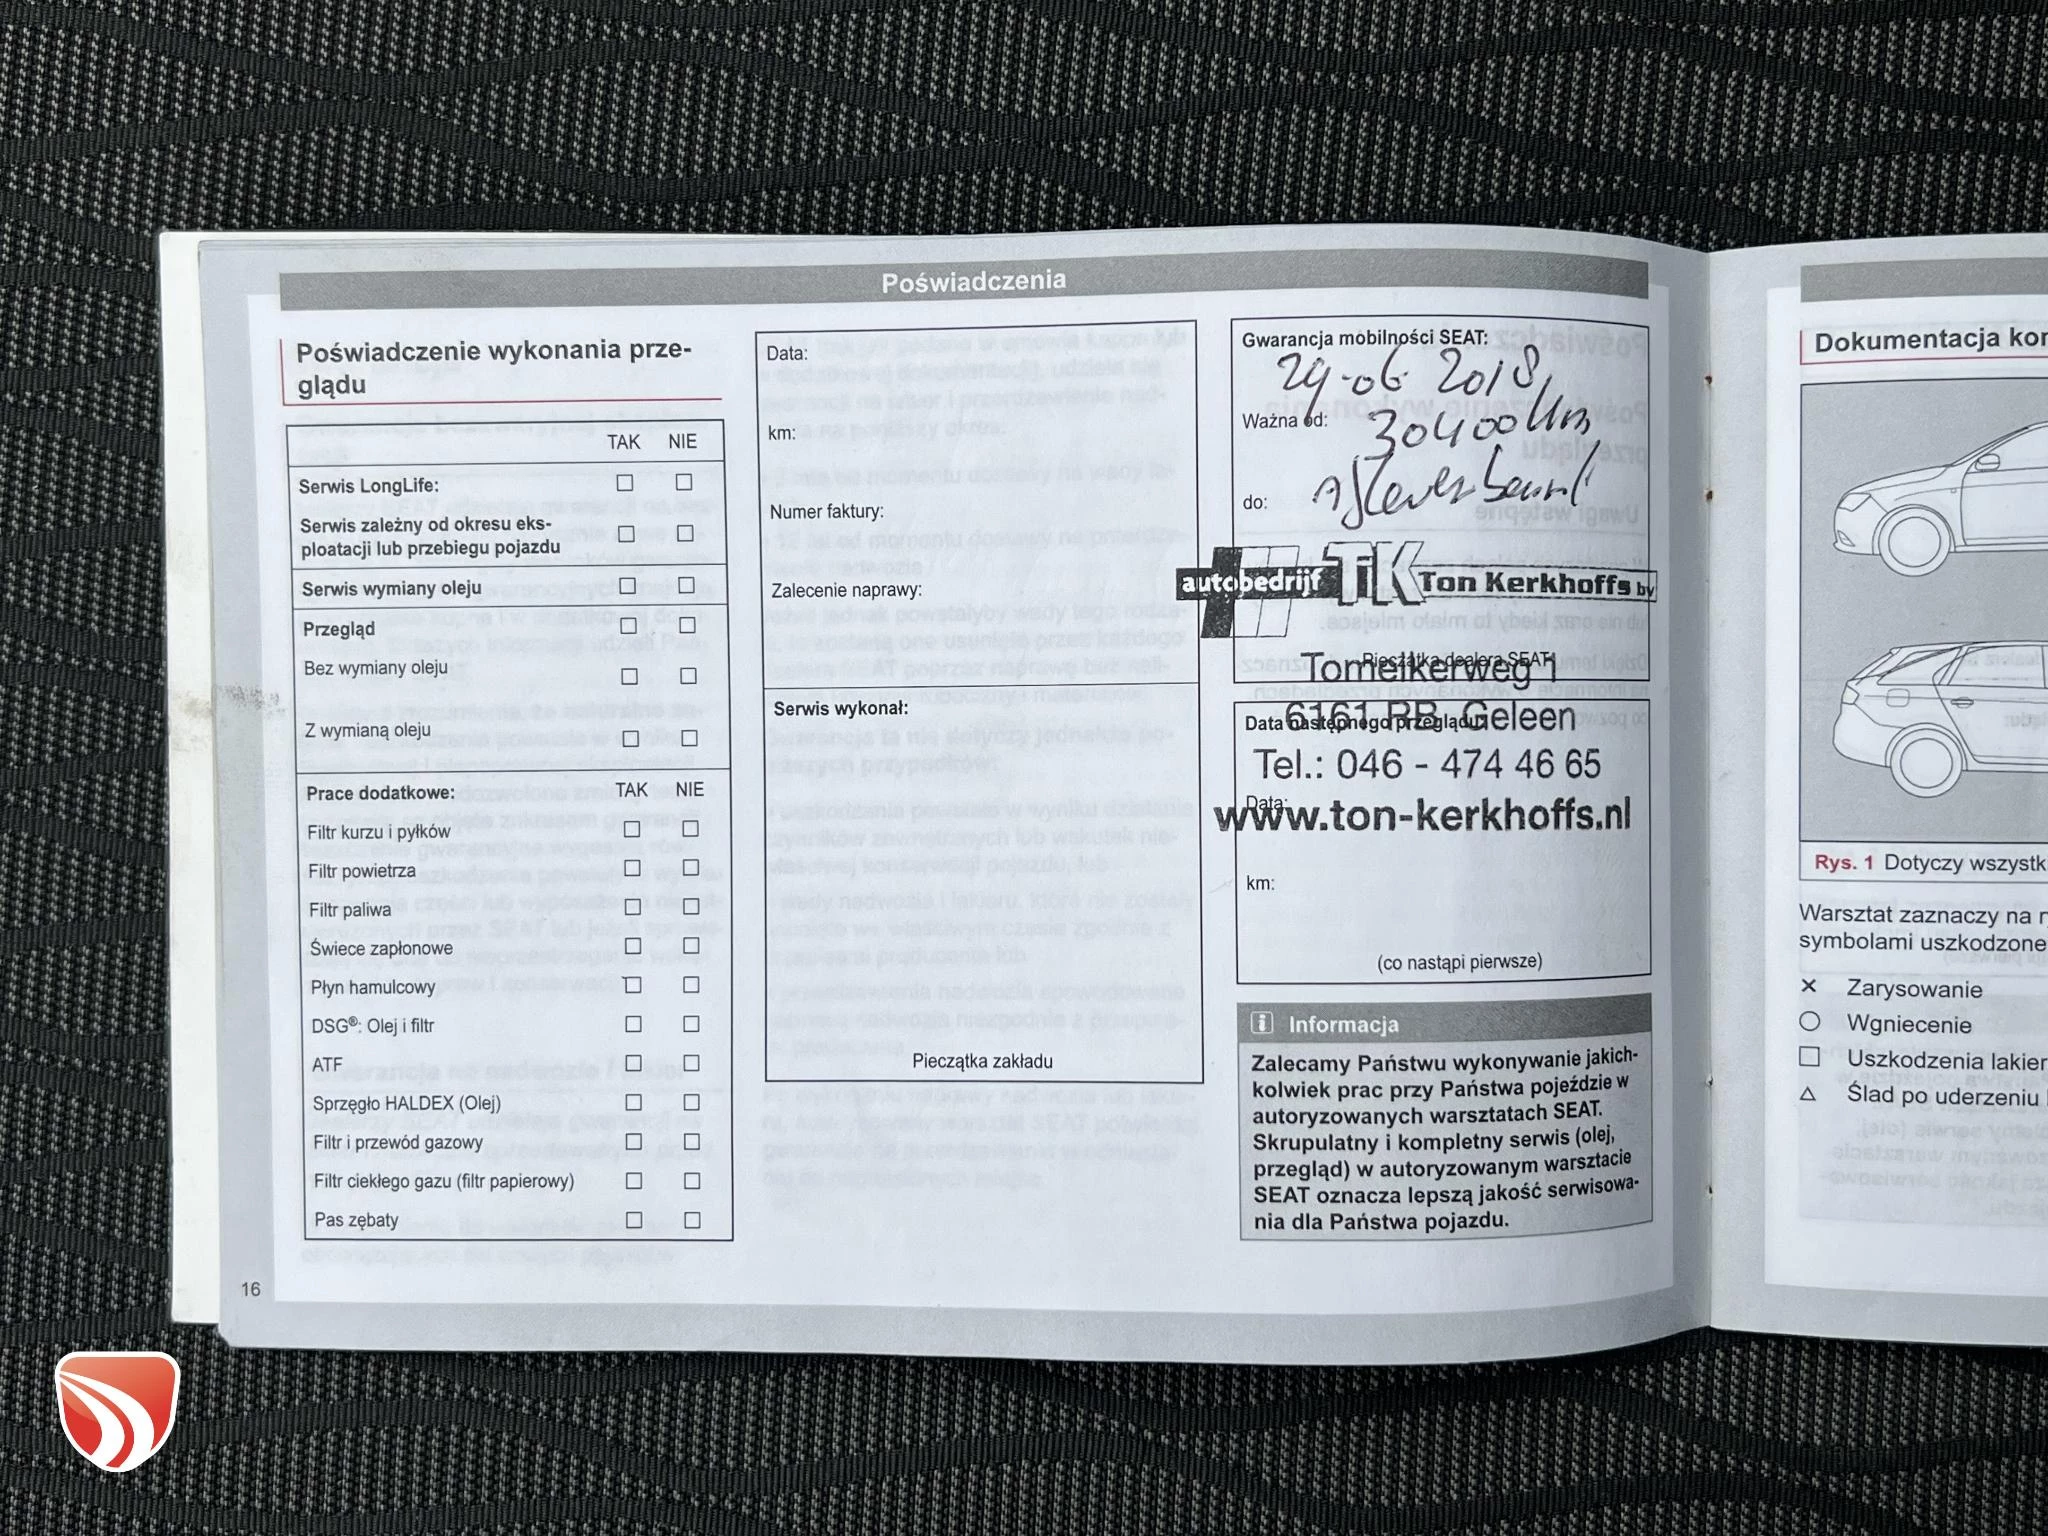 Poświadczenia
Poświadczenie wykonania prze-
glądu
TAK NIE
Serwis LongLife:
Serwis zależny od okresu eks-
ploatacji lub przebiegu pojazdu
Serwis wymiany oleju
Przegląd
Bez wymiany oleju
Z wymianą oleju
Prace dodatkowe: TAK NIE
Filtr kurzu i pyłków
Filtr powietrza
Filtr paliwa
Świece zapłonowe
Płyn hamulcowy
DSG®: Olej i filtr
ATF
Sprzęgło HALDEX (Olej)
Filtr i przewód gazowy
Filtr ciekłego gazu (filtr papierowy)
Pas zębaty
16
Data:
km:
Numer faktury:
Zalecenie naprawy:
Serwis wykonał:
Pieczątka zakładu
Gwarancja mobilności SEAT:
29-06 2018
Ważna od: 30400 km
do:
autobedrijf TK Ton Kerkhoffs bv
Pieczątka dealera SEAT
Tomeikerweg 1
6161 RB Geleen
Data następnego przeglądu:
Tel.: 046 - 474 46 65
Data:
www.ton-kerkhoffs.nl
km:
(co nastąpi pierwsze)
i Informacja
Zalecamy Państwu wykonywanie jakich-
kolwiek prac przy Państwa pojeździe w
autoryzowanych warsztatach SEAT.
Skrupulatny i kompletny serwis (olej,
przegląd) w autoryzowanym warsztacie
SEAT oznacza lepszą jakość serwisowa-
nia dla Państwa pojazdu.
Dokumentacja
Rys. 1 Dotyczy
Warsztat zaznaczy na
symbolami uszkodzone
Zarysowanie
Wgniecenie
Uszkodzenia
Ślad po uderzeniu